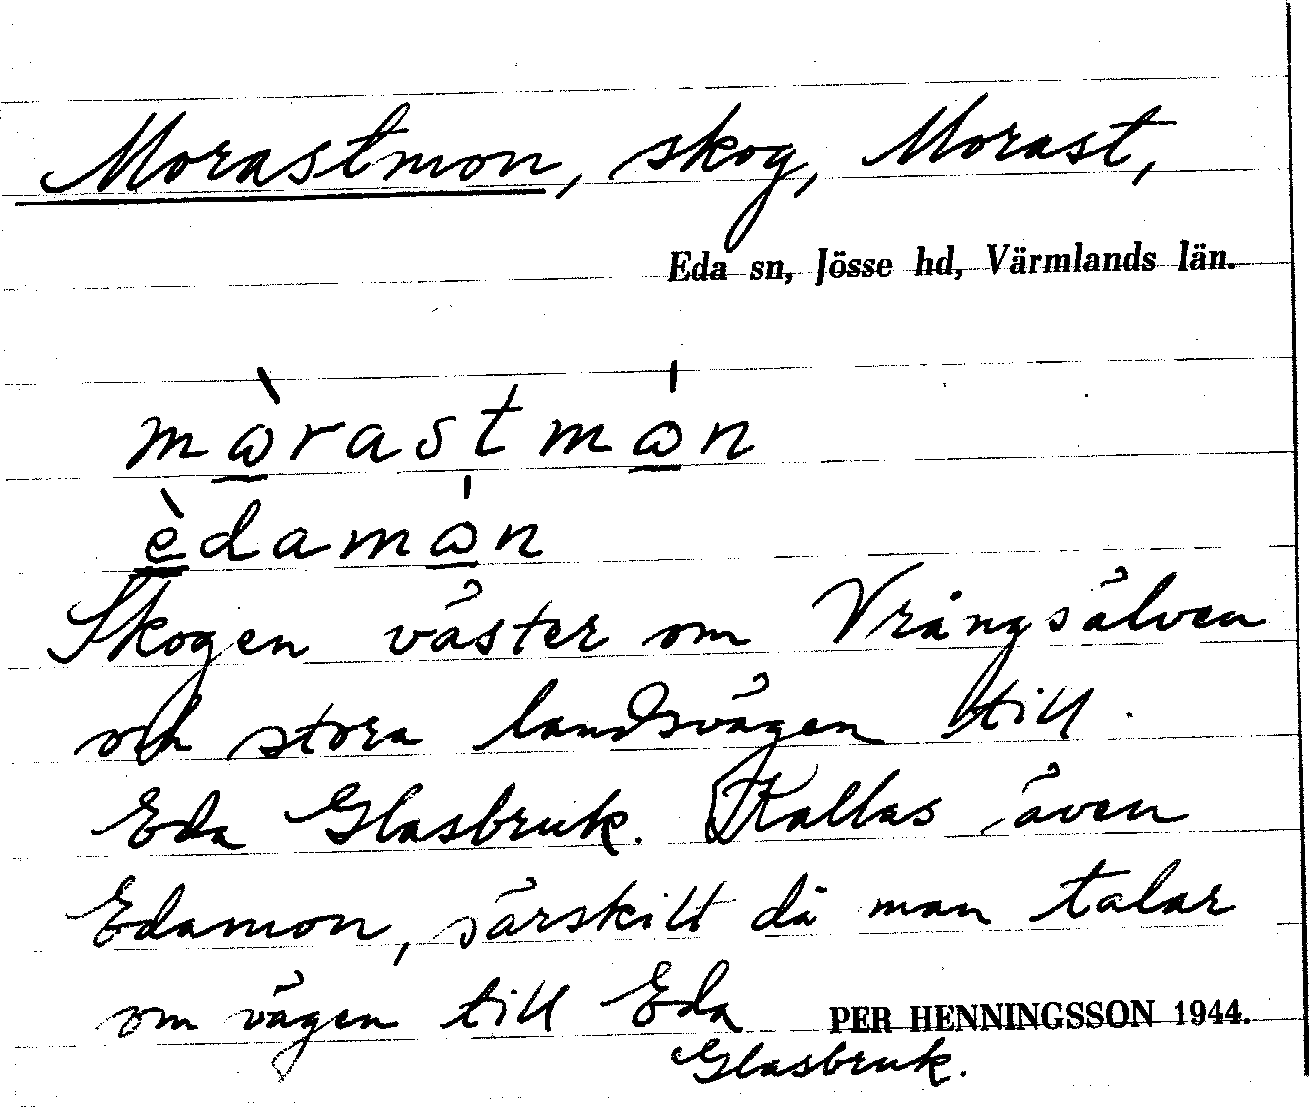 Morastmon, skog, Morast,
Eda sn, Jösse hd, Värmlands län.
mὼrastmώn
èdamώn
Skogen väster om Vrångsälven
och stora landsvägen till
Eda Glasbruk. Kallas även
Edamon, särskilt då man talar
om vägen till Eda
PER HENNINGSSON 1944.
Glasbruk.